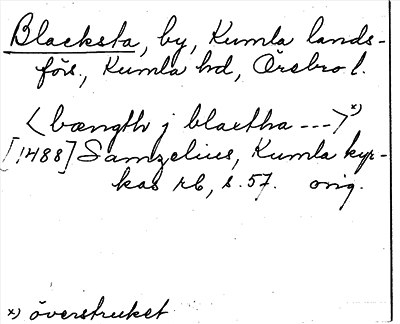 Blacksta, by, Kumla lands-
förs., Kumla hd, Örebro l.
<bængth j blaxtha --->x)
[1488] Samzelius, Kumla kyr-
kas rb, s. 57. orig.
x) överstruket